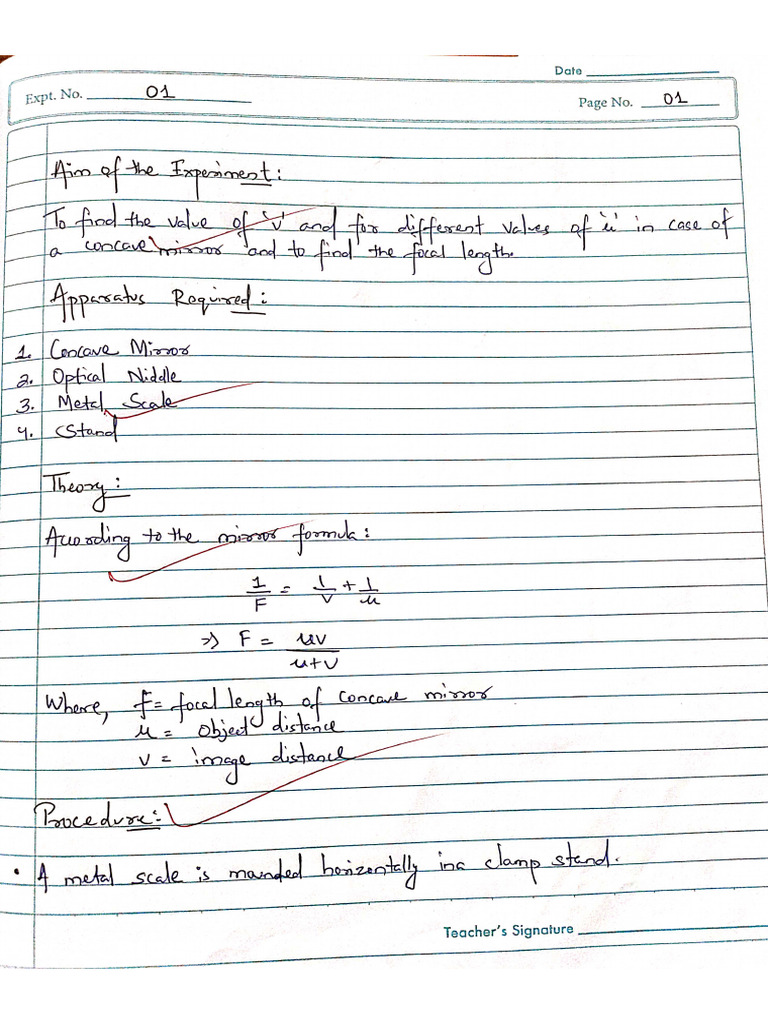 Date
Expt. No. 01
Page No. 01
Aim of the Experiment:
To find the value of 'v' and for different values of 'u' in case of
a concave mirror and to find the focal length.
Apparatus Required:
1. Concave Mirror
2. Optical Niddle
3. Metal Scale
4. Stand
Theory:
According to the mirror formula:
1/F = 1/v + 1/u
=> F = uv/u+v
Where, F = focal length of concave mirror
u = Object distance
v = image distance
Procedure:
• A metal scale is manded horizentally in a clamp stand.
Teacher's Signature